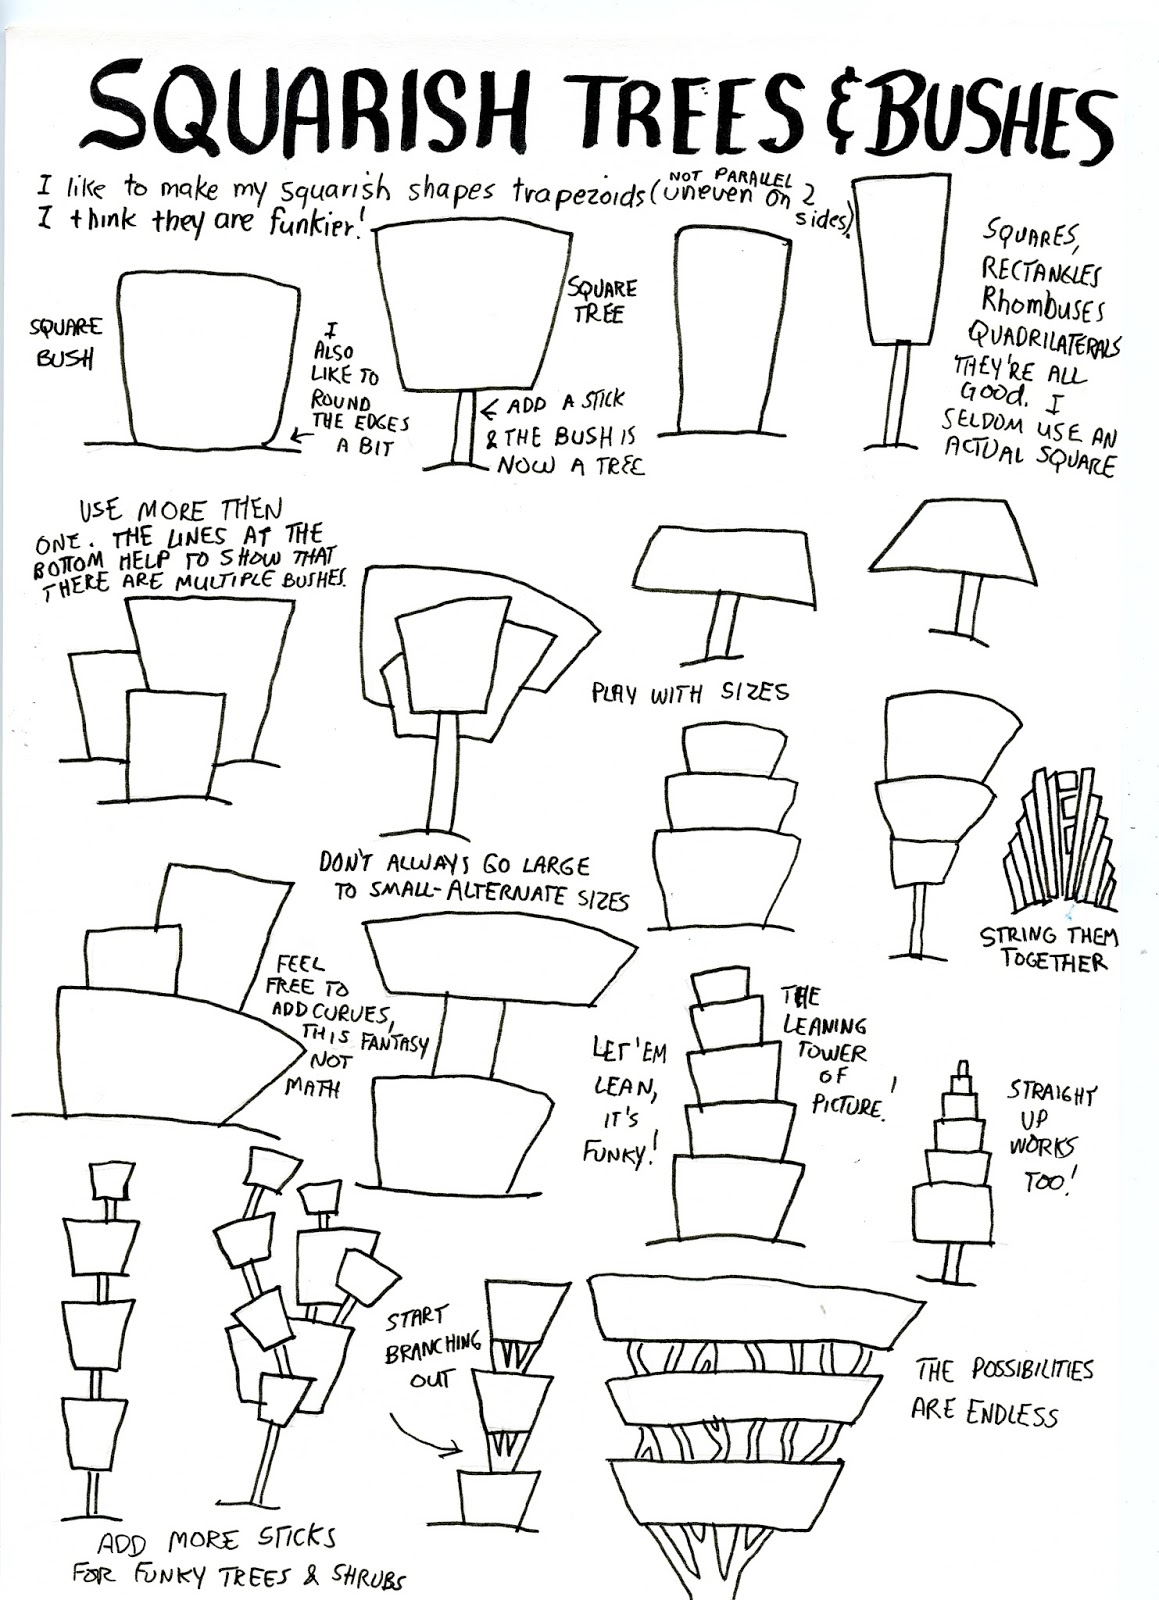 SQUARISH TREES & BUSHES
I like to make my squarish shapes trapezoids (NOT PARALLEL uneven on 2 sides)
I think they are funkier!
SQUARE
BUSH
I
ALSO
LIKE TO
ROUND
THE EDGES
A BIT
SQUARE
TREE
ADD A STICK
& THE BUSH IS
NOW A TREE
SQUARES,
RECTANGLES
RhomBUSES
QUADRILATERALS
THEY'RE ALL
GOOD. I
SELDOM USE AN
ACTUAL SQUARE
USE MORE THEN
ONE. THE LINES AT THE
BOTTOM HELP TO SHOW THAT
THERE ARE MULTIPLE BUSHES.
PLAY WITH SIZES
DON'T ALWAYS GO LARGE
TO SMALL-ALTERNATE SIZES
STRING THEM
TOGETHER
FEEL
FREE TO
ADD CURVES,
THIS FANTASY
NOT
MATH
LET 'EM
LEAN,
IT'S
FUNKY!
THE
LEANING
TOWER
OF
PICTURE!
STRAIGHT
UP
WORKS
TOO!
START
BRANCHING
OUT
THE POSSIBILITIES
ARE ENDLESS
ADD MORE STICKS
FOR FUNKY TREES & SHRUBS